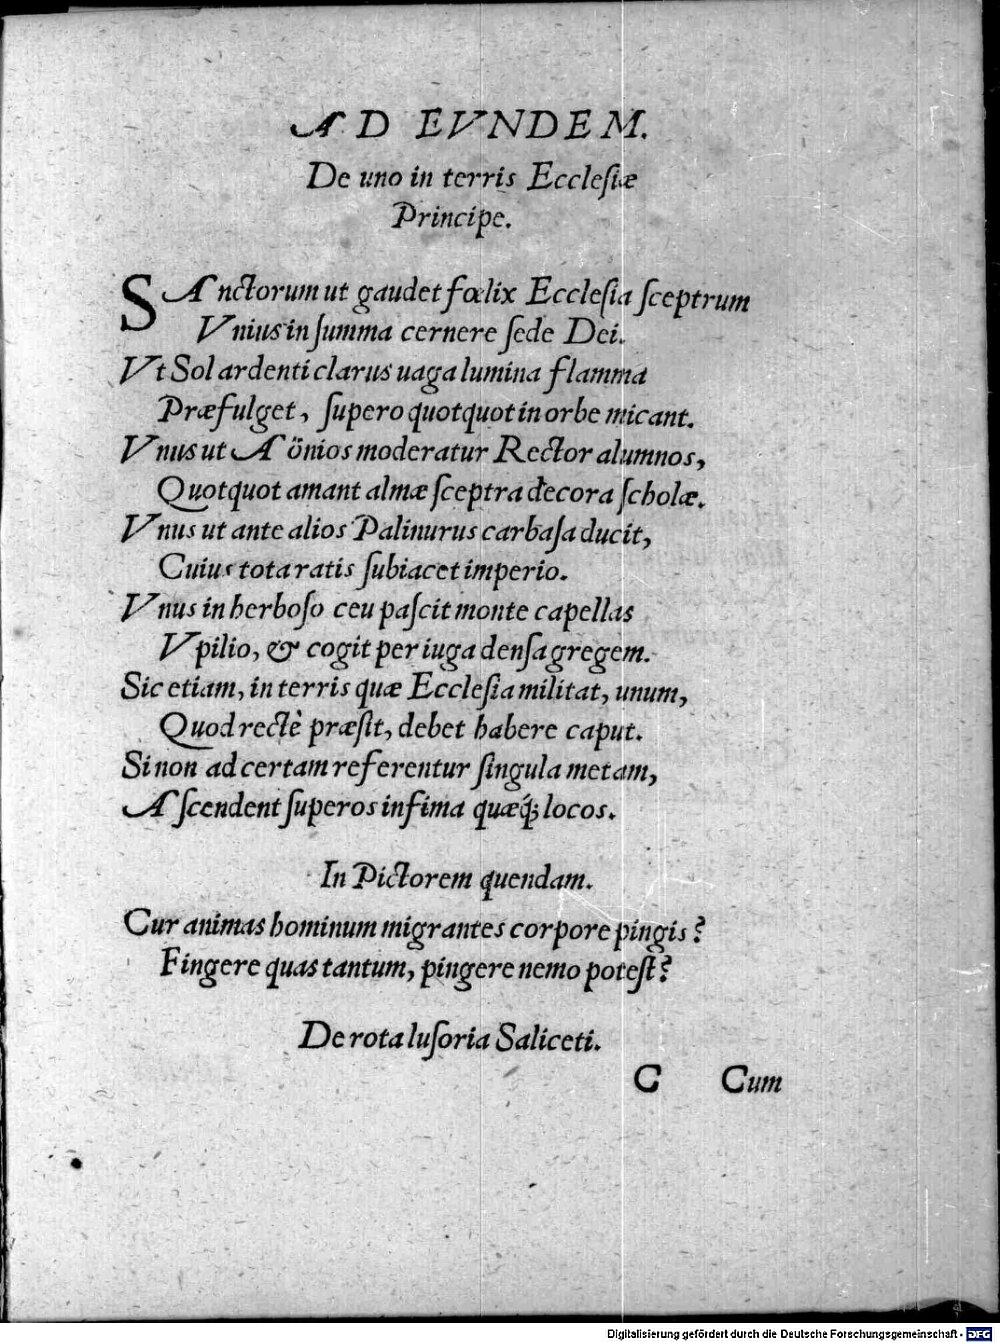 AD EVNDEM.
De uno in terris Ecclesiæ
Principe.
SAnctorum ut gaudet fœlix Ecclesia sceptrum
Vnius in summa cernere sede Dei.
Vt Sol ardenti clarus uaga lumina flamma
Præfulget, supero quotquot in orbe micant.
Vnus ut Aönios moderatur Rector alumnos,
Quotquot amant almæ sceptra decora scholæ.
Vnus ut ante alios Palinurus carbasa ducit,
Cuius tota ratis subiacet imperio.
Vnus in herboso ceu pascit monte capellas
Vpilio, & cogit per iuga densa gregem.
Sic etiam, in terris quæ Ecclesia militat, unum,
Quod rectè præsit, debet habere caput.
Si non ad certam referentur singula metam,
Ascendent superos infima quæq́; locos.
In Pictorem quendam.
Cur animas hominum migrantes corpore pingis?
Fingere quas tantum, pingere nemo potest?
De rota lusoria Saliceti.
C Cum
Digitalisierung gefördert durch die Deutsche Forschungsgemeinschaft - DFG